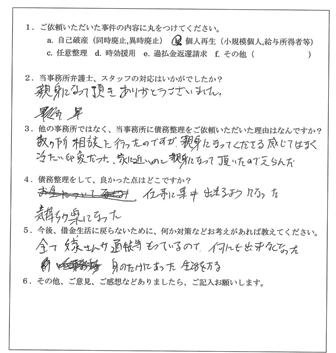 1．ご依頼いただいた事件の内容に丸をつけてください。
a. 自己破産（同時廃止,異時廃止） b 個人再生（小規模個人,給与所得者等）
c. 任意整理 d. 時効援用 e. 過払金返還請求 f. その他（ ）
2．当事務所弁護士、スタッフの対応はいかがでしたか？
親身になって頂きありがとうございました。
3．他の事務所ではなく、当事務所に債務整理をご依頼いただいた理由はなんですか？
数ヶ所相談に行ったのですが、親身になってくださる感じではなく
冷たい印象だった。 親身になって頂いたので
4．債務整理をして、良かった点はどこですか？
仕事に集中出来るようになった
5．今後、借金生活に戻らないために、何か対策などお考えがあれば教えてください。
全て さんが通帳もっているので 何にも出来なくなった
身のたけにあった
6．その他、ご意見、ご感想などありましたら、ご記入お願いします。